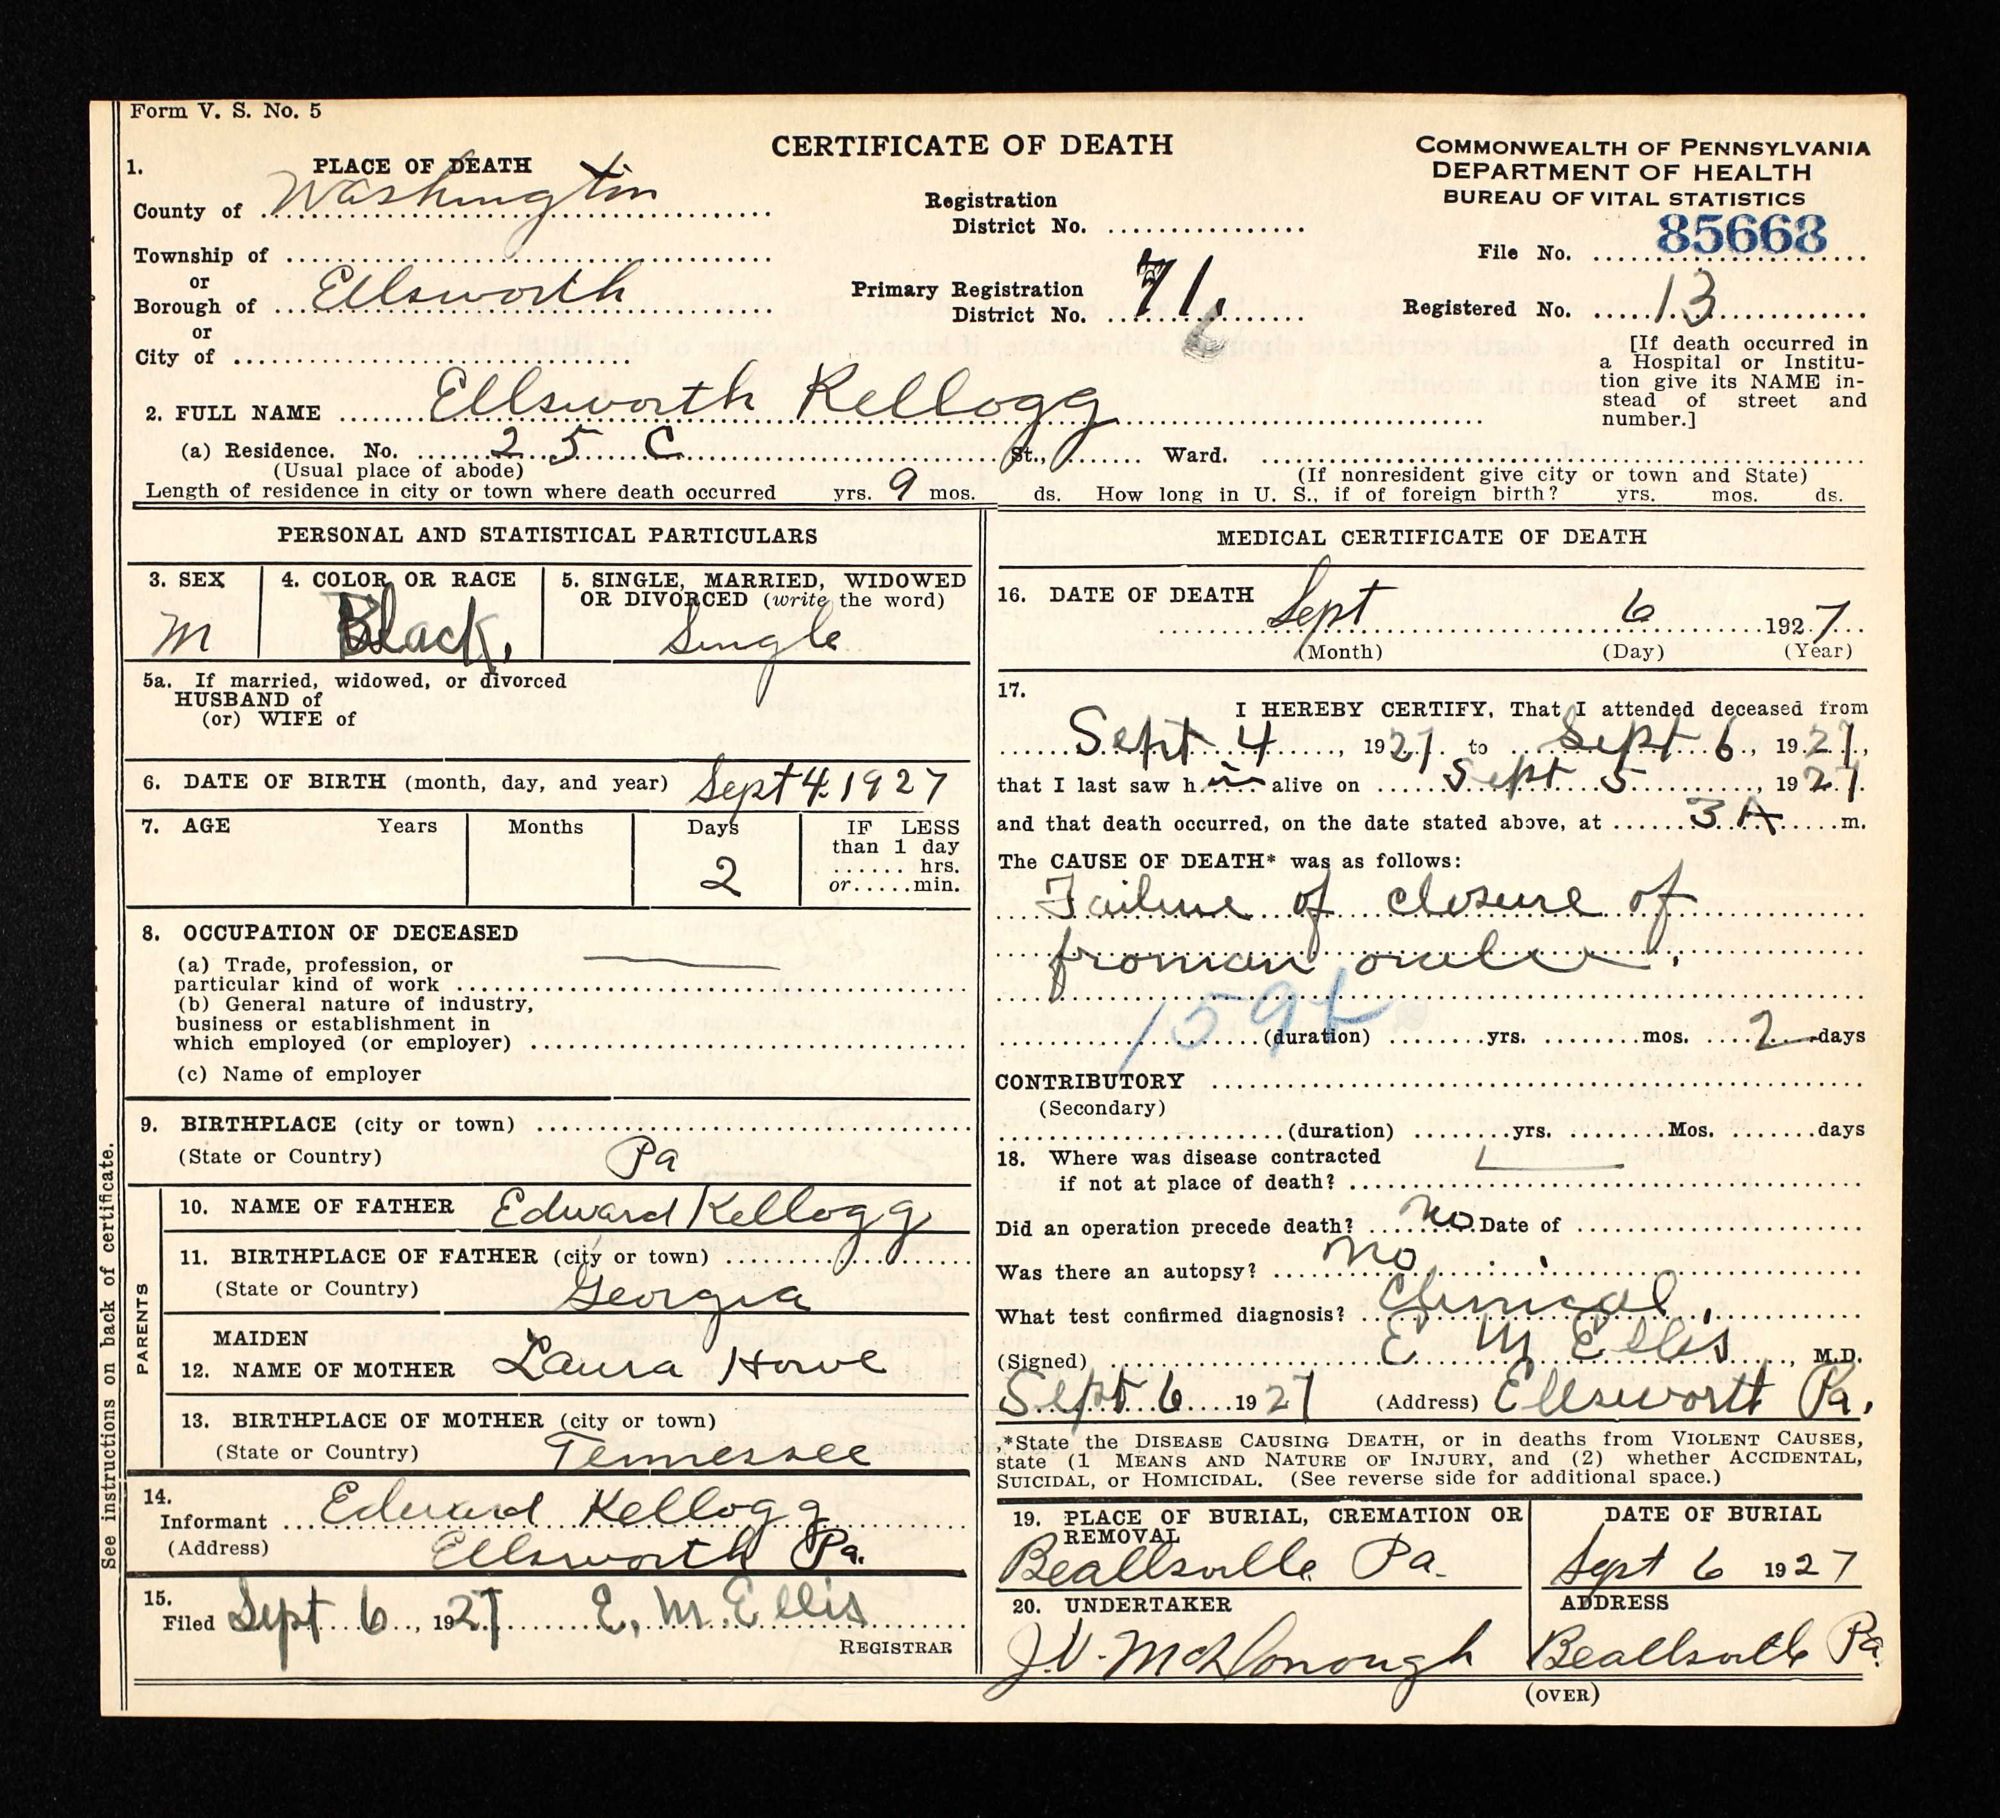 Form V. S. No. 5
CERTIFICATE OF DEATH
COMMONWEALTH OF PENNSYLVANIA
DEPARTMENT OF HEALTH
BUREAU OF VITAL STATISTICS
1. PLACE OF DEATH
County of Washington
Township of
or
Borough of Ellsworth
or
City of
Registration
District No.
Primary Registration
District No. 71
File No. 85668
Registered No. 13
[If death occurred in
a Hospital or Institu-
tion give its NAME in-
stead of street and
number.]
2. FULL NAME Ellsworth Kellogg
(a) Residence. No. 25 C St., Ward.
(Usual place of abode) (If nonresident give city or town and State)
Length of residence in city or town where death occurred yrs. 9 mos. ds. How long in U. S., if of foreign birth? yrs. mos. ds.
PERSONAL AND STATISTICAL PARTICULARS
3. SEX
M
4. COLOR OR RACE
Black.
5. SINGLE, MARRIED, WIDOWED
OR DIVORCED (write the word)
Single
5a. If married, widowed, or divorced
HUSBAND of
(or) WIFE of
6. DATE OF BIRTH (month, day, and year) Sept 4. 1927
7. AGE Years Months Days IF LESS
than 1 day
hrs.
or min.
2
8. OCCUPATION OF DECEASED
(a) Trade, profession, or
particular kind of work
(b) General nature of industry,
business or establishment in
which employed (or employer)
(c) Name of employer
9. BIRTHPLACE (city or town)
(State or Country) Pa
PARENTS
10. NAME OF FATHER Edward Kellogg
11. BIRTHPLACE OF FATHER (city or town)
(State or Country) Georgia
MAIDEN
12. NAME OF MOTHER Laura Howe
13. BIRTHPLACE OF MOTHER (city or town)
(State or Country) Tennessee
14.
Informant Edward Kellogg
(Address) Ellsworth Pa.
15.
Filed Sept 6, 1927 E. M. Ellis
REGISTRAR
See instructions on back of certificate.
MEDICAL CERTIFICATE OF DEATH
16. DATE OF DEATH
Sept 6 1927
(Month) (Day) (Year)
17.
I HEREBY CERTIFY, That I attended deceased from
Sept 4, 1927 to Sept 6, 1927,
that I last saw him alive on Sept 5, 1927.
and that death occurred, on the date stated above, at 3 A m.
The CAUSE OF DEATH* was as follows:
Failure of closure of
froman ovale.
159
(duration) yrs. mos. 2 days
CONTRIBUTORY
(Secondary)
(duration) yrs. Mos. days
18. Where was disease contracted
if not at place of death?
Did an operation precede death? no Date of
Was there an autopsy? no
What test confirmed diagnosis? Clinical
(Signed) E M Ellis, M.D.
Sept 6 1927 (Address) Ellsworth Pa.
*State the DISEASE CAUSING DEATH, or in deaths from VIOLENT CAUSES,
state (1 MEANS AND NATURE OF INJURY, and (2) whether ACCIDENTAL,
SUICIDAL, or HOMICIDAL. (See reverse side for additional space.)
19. PLACE OF BURIAL, CREMATION OR
REMOVAL
Beallsville Pa.
DATE OF BURIAL
Sept 6 1927
20. UNDERTAKER
J.V. McDonough
ADDRESS
Beallsville Pa.
(OVER)